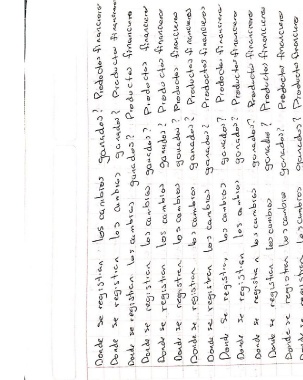 Donde se registran los cambios ganados? Productos financieros
Donde se registran los cambios ganados? Productos financieros
Donde se registran los cambios ganados? Productos financieros
Donde se registran los cambios ganados? Productos financieros
Donde se registran los cambios ganados? Productos financieros
Donde se registran los cambios ganados? Productos financieros
Donde se registran los cambios ganados? Productos financieros
Donde se registran los cambios ganados? Productos financieros
Donde se registran los cambios ganados? Productos financieros
Donde se registran los cambios ganados? Productos financieros
Donde se registran los cambios ganados? Productos financieros
Donde se registran los cambios ganados? Productos financieros
Donde se registran los cambios ganados? Productos financieros
Donde se registran los cambios ganados? Productos financieros